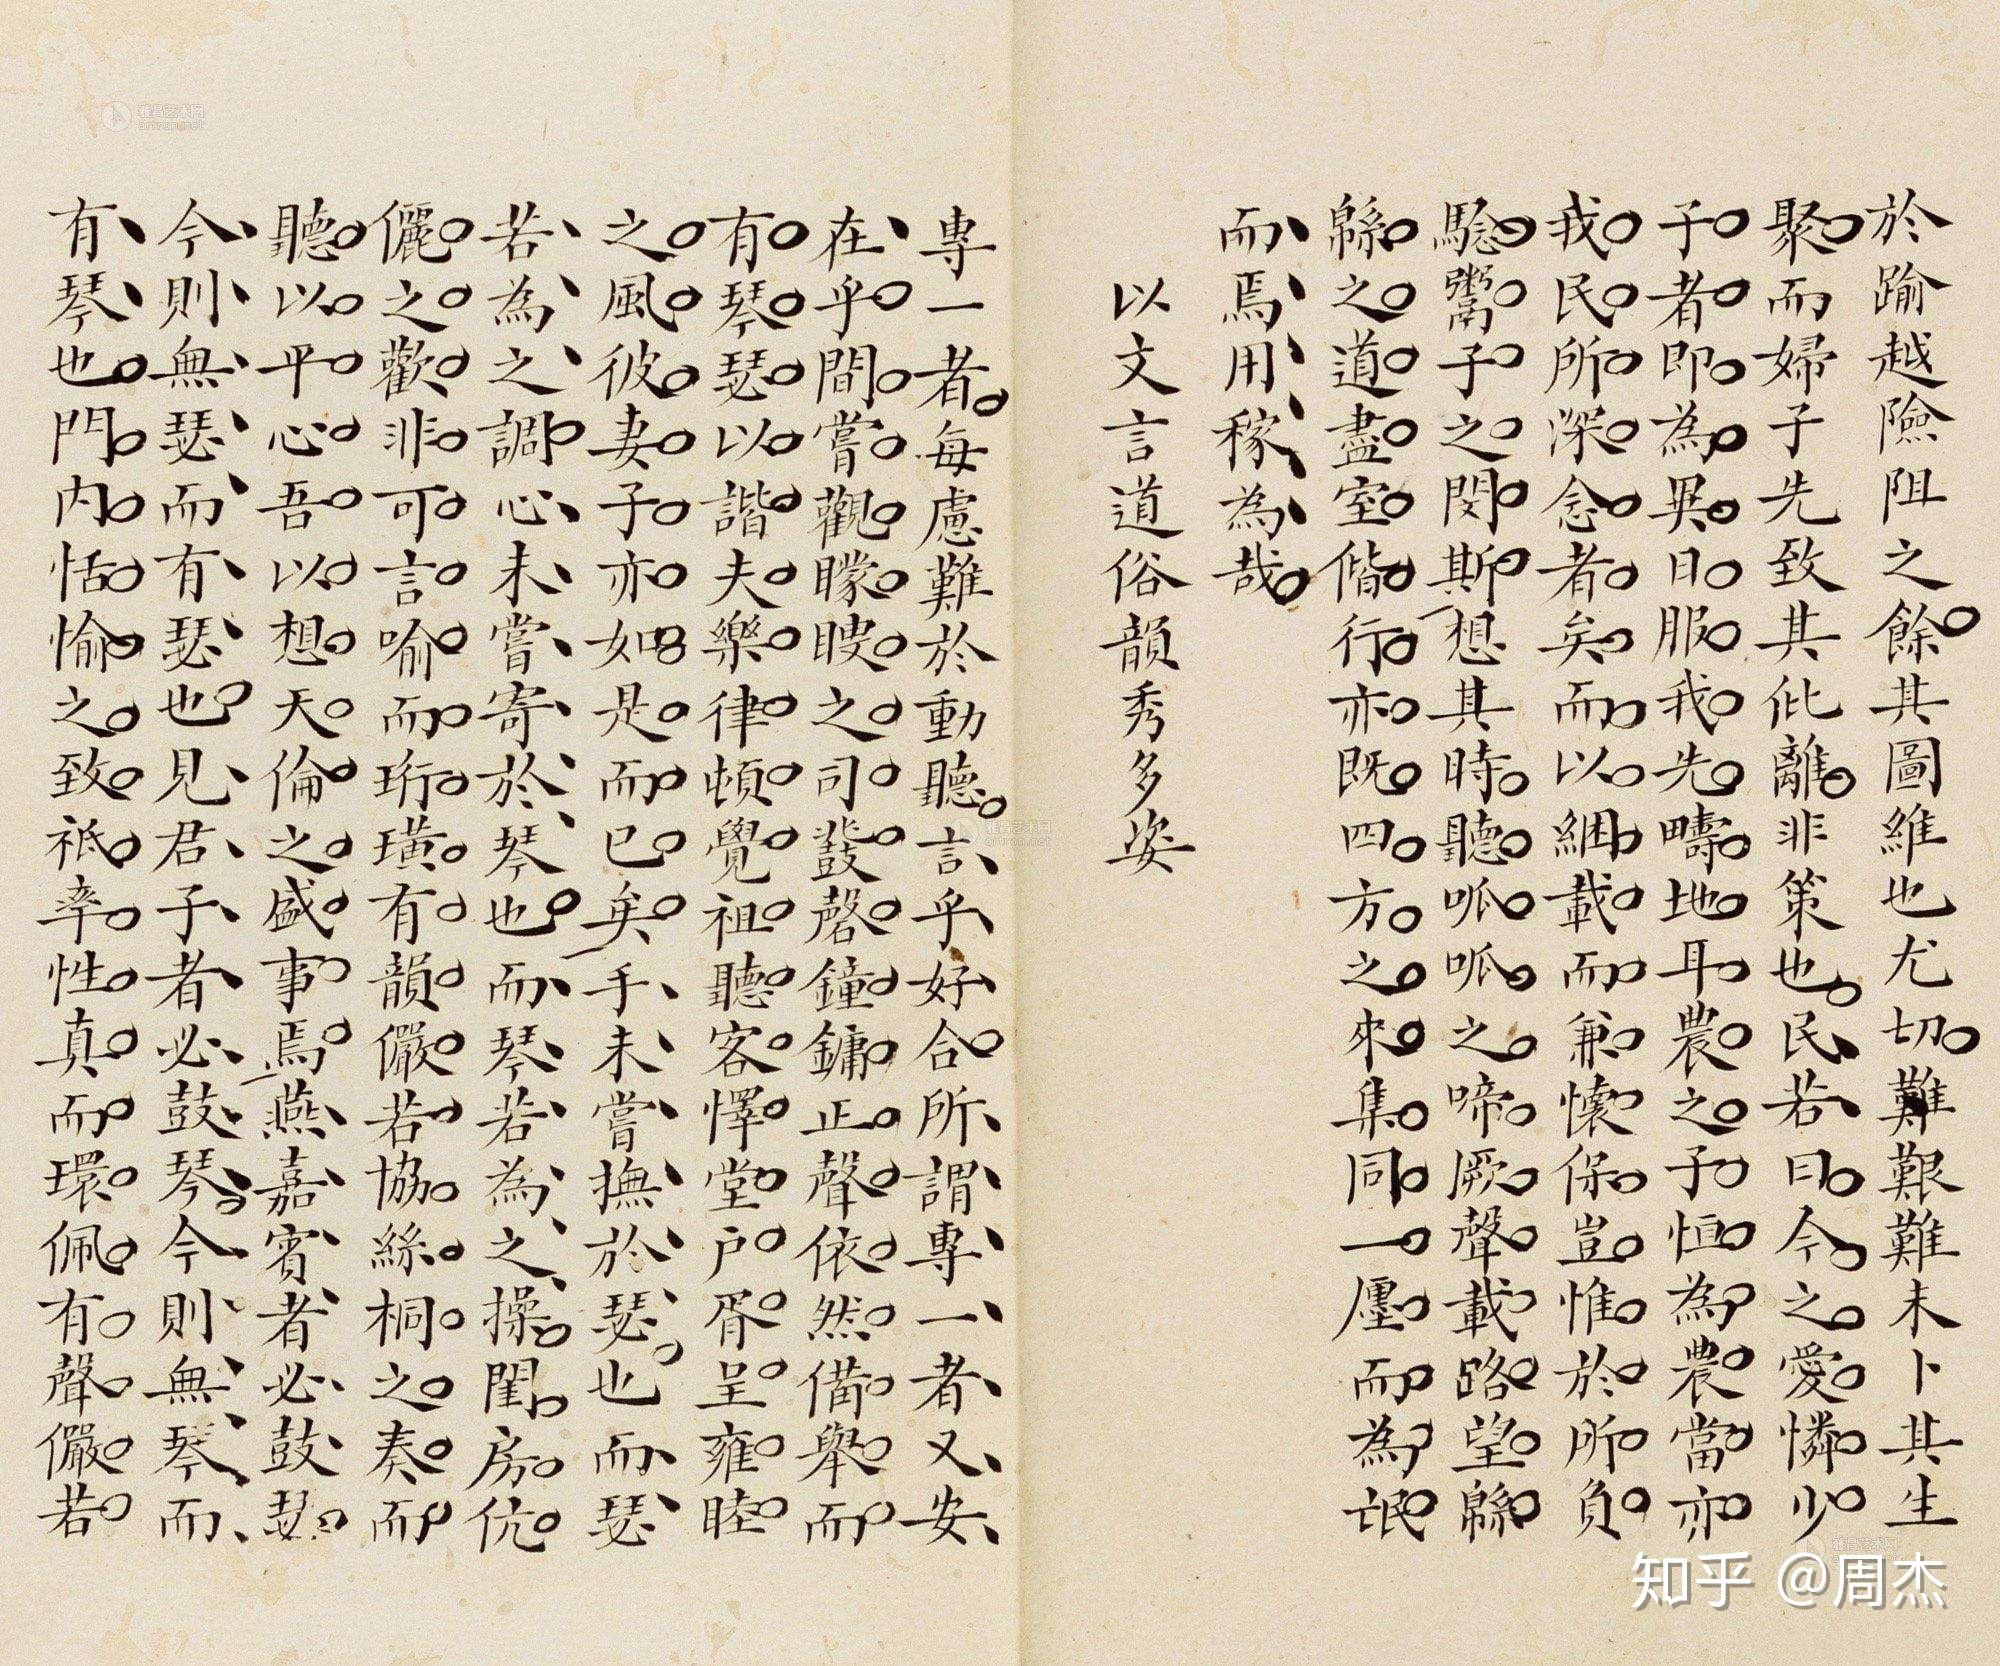 於踰越險阻之餘其圖維也尤切難艱難未卜其生
聚而婦子先致其仳離非策也民若曰今之愛憐少
子者即為異日服我先疇地耳農之子恒為農當亦
我民所深念者矣而以綑載而兼懷保豈惟於所負
騐鬻子之閔斯想其時聽呱呱之啼厥聲載路望緜
緜之道盡室偕行亦既四方之來集同一廛而為氓
而焉用稼為哉
以文言道俗韻秀多姿
專一者每慮難於動聽言乎好合所謂專一者又安
在乎間嘗觀矇瞍之司鼗磬鐘鏞正聲依然備舉而
有琴瑟以諧夫樂律頓覺祖聽客懌堂户胥呈雍睦
之風彼妻子亦如是而已矣手未嘗撫於瑟也而瑟
若為之調心未嘗寄於琴也而琴若為之操閨房伉
儷之歡非可言喻而珩璜有韻儼若協絲桐之奏而
聽以平心吾以想天倫之盛事焉燕嘉賓者必鼓瑟
今則無瑟而有瑟也見君子者必鼓琴今則無琴而
有琴也門内恬愉之致祗率性真而環佩有聲儼若
知乎 @周杰
雅昌艺术网
artron.net